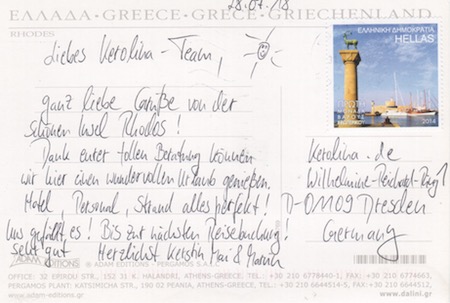 ΕΛΛΑΔΑ-GREECE-GRECE-GRIECHENLAND
RHODES
28.07./18
Liebes Kerolina-Team,
ganz liebe Grüße von der
schönen Insel Rhodos!
Dank eurer tollen Beratung können
wir hier einen wundervollen Urlaub genießen.
Hotel, Personal, Strand alles perfekt!
Uns gefällt es! Bis zur nächsten Reisebuchung!
sehr gut Herzlichst Kerstin Mai &
ΕΛΛΗΝΙΚΗ ΔΗΜΟΚΡΑΤΙΑ
HELLAS
2014
Kerolina.de
Wilhelmine-Reichard-Ring 1
D-01109 Dresden
Germany
ADAM EDITIONS
® ADAM EDITIONS - PERGAMOS S.A.I.C.
OFFICE: 32 EPIROU STR., 152 31 K. HALANDRI, ATHENS-GREECE, TEL.: +30 210 6778440-1, FAX: +30 210 6774663,
PLANT: KAMPSIZA STR., 190 02 PEANIA, ATHENS-GREECE, TEL.: +30 210 6644512-4, FAX: +30 210 6644515,
www.adam-editions.gr
www.dalini.gr